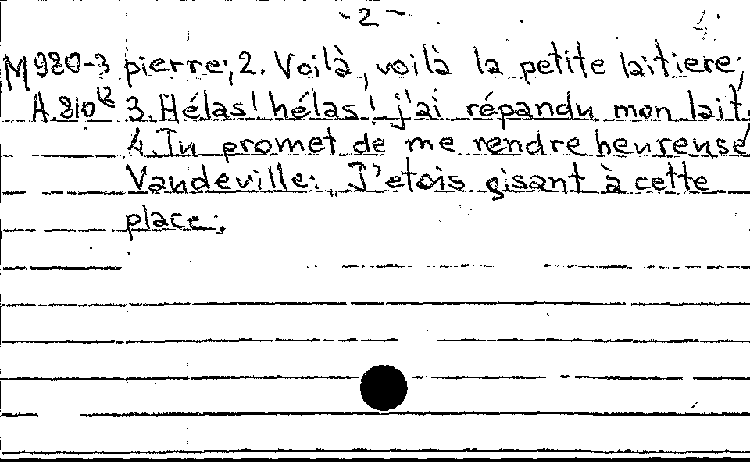 - 2 -
M980-3 pierre; 2. Voilà, voilà la petite laitiere;
A.810 3. Hélas! hélas! j'ai répandu mon lait.
4. Tu promet de me rendre heureuse
Vaudeville: J'etois gisant à cette
place.